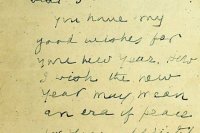 You have my
good wishes for
your new year. How
I wish the new
year may mean
an era of peace